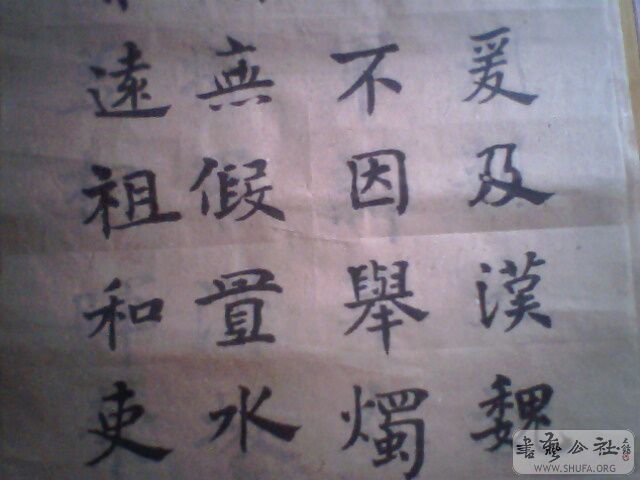 爰及漢魏
不因舉燭
無假置水
遠祖和吏
書藝公社
WWW.SHUFA.ORG